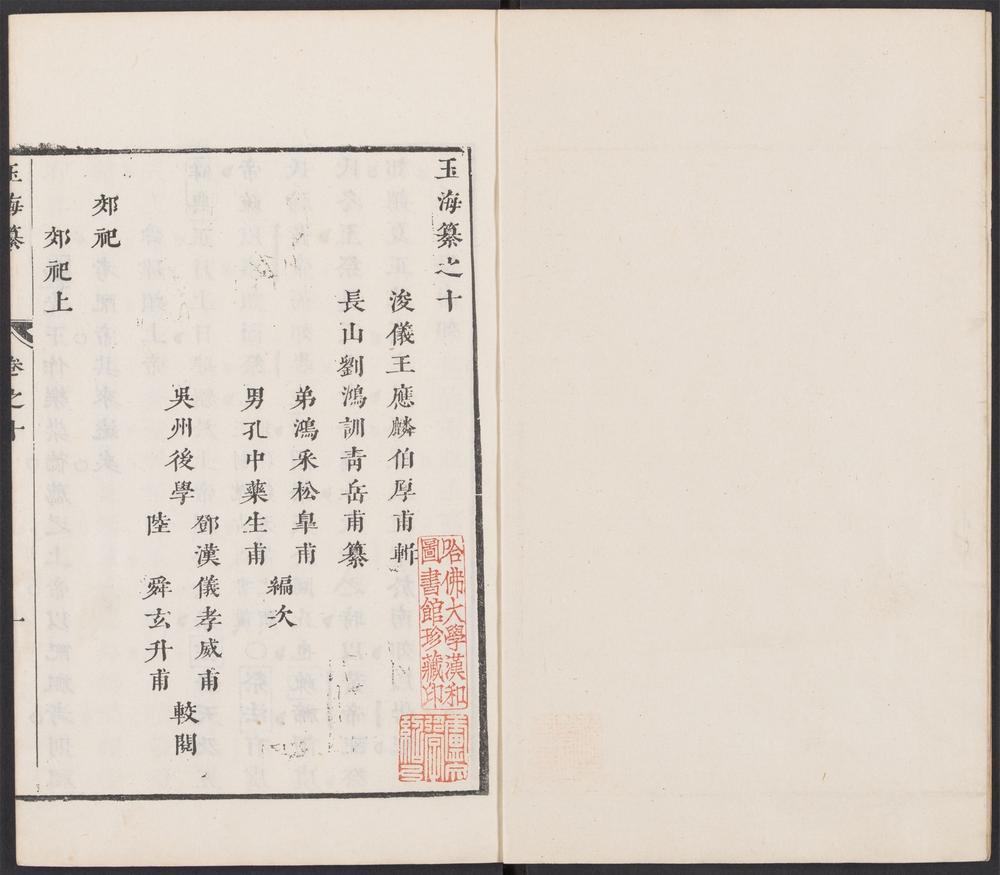 玉海纂之十
浚儀王應麟伯厚甫斬
長山劉鴻訓青岳甫纂
弟鴻采松臯甫
男孔中藥生甫
編次
吳州後學
鄧漢儀孝威甫
陸舜玄升甫
較閱
郊祀
郊祀上
玉海纂
卷之十
一
哈佛大學漢和
圖書館珍藏印